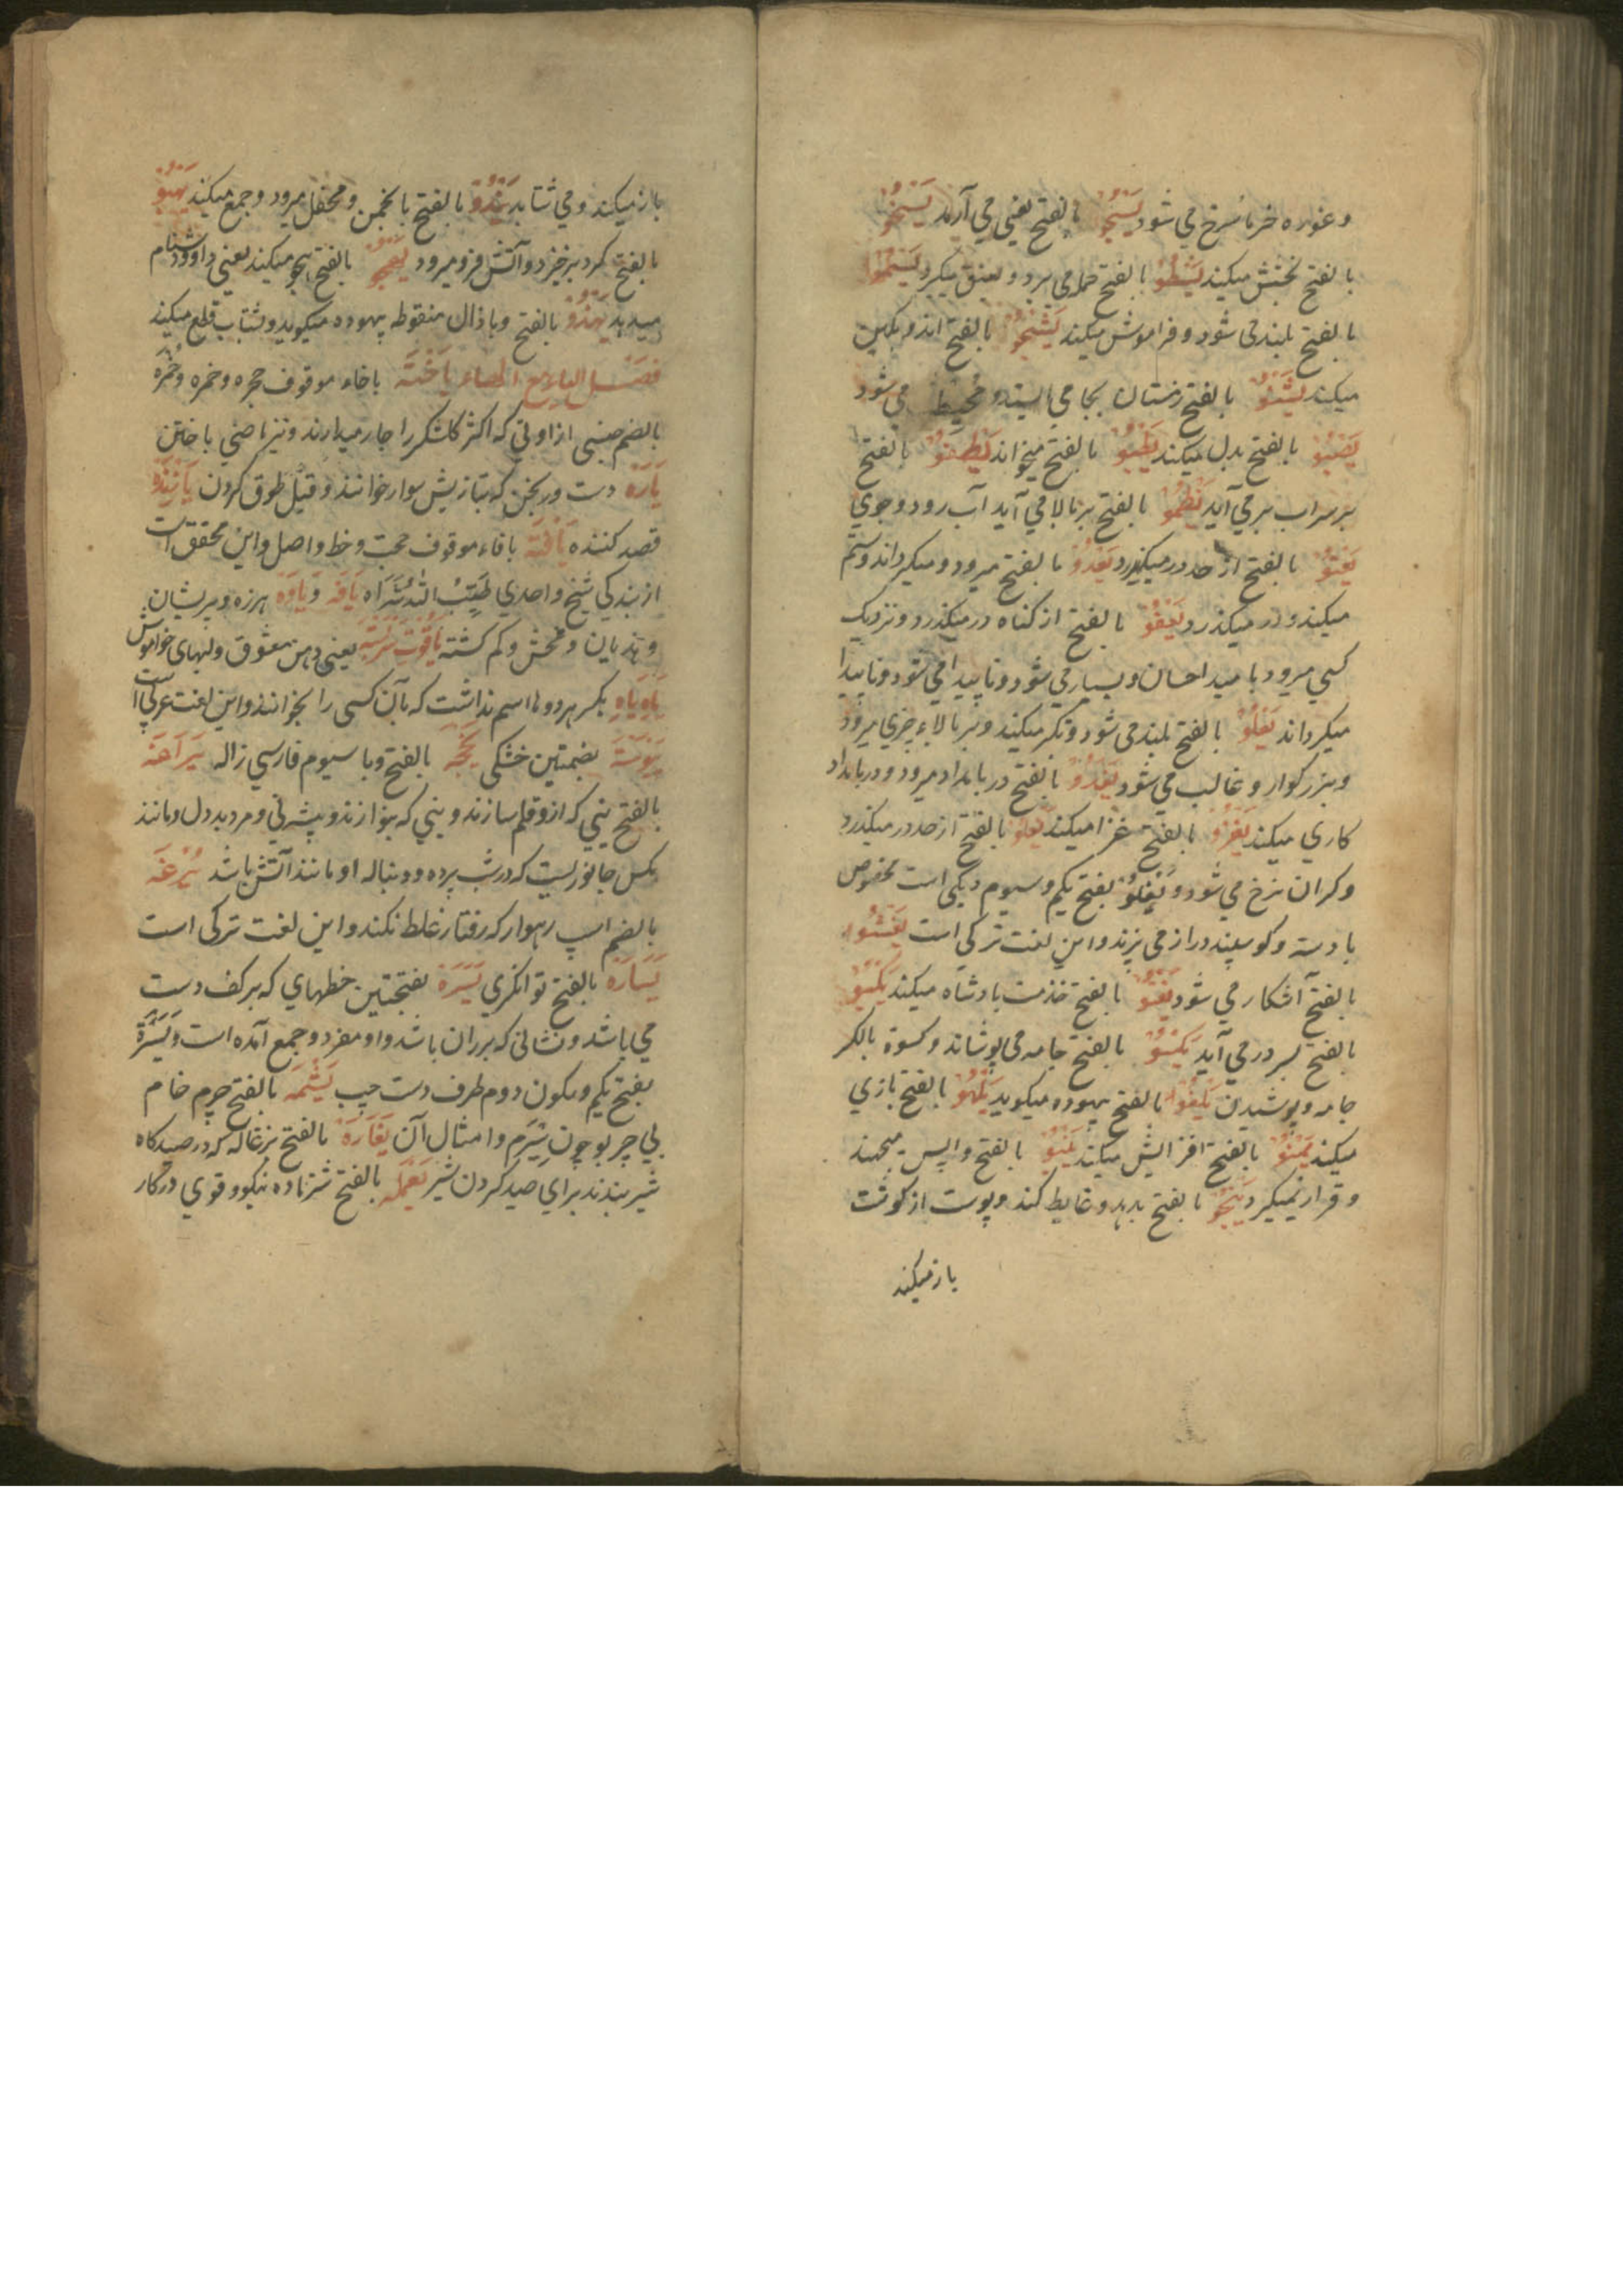 وغوره خرما سرخ می شود یسجو بالفتح یعنی می آرند یسخو
بالفتح بخشش میکند یسطو بالفتح حمله می برد و بعنف میگیرد یسمو
بالفتح بلند می شود و فراموش میکند یشجو بالفتح اندوهگین
میکند یشتو بالفتح زمستان بجا می ایستد و محیط می شود
یصبو بالفتح بدل میکند یطبو بالفتح میخواند یطفو بالفتح
بر سر آب بر می آید یطمو بالفتح بر بالا می آید آب رود وجوی
یعتو بالفتح از حد در میگذرد یعدو بالفتح میرود و میگرداند و ستم
میکند و در میگذرد یعفو بالفتح از گناه در میگذرد و نزدیک
کسی میرود بامید احسان و بسیار می شود و ناپیدا می شود و ناپیدا
میگرداند یعلو بالفتح بلند می شود و تکبر میکند و بر بالاء چیزی میرود
و بزرگوار و غالب می شود یغدو بالفتح در بامداد میرود و در بامداد
کاری میکند یغزو بالفتح غزا میکند یغلو بالفتح از حد در میگذرد
و گران نرخ می شود و یغلو بفتح یکم و سیوم دیگی است مخصوص
با دسته و گوسپند دراز می پزند و این لغت ترکی است یفشو
بالفتح آشکار می شود یقتو بالفتح خدمت بادشاه میکند یکبو
بالفتح بسر در می آید یکسو بالفتح جامه می پوشاند و کسوة بالکسر
جامه و پوشیدن یلغو بالفتح بیهوده میگوید یلهو بالفتح بازی
میکند ینمو بالفتح افزایش میکند ینبو بالفتح واپس میجهند
و قرار نمیگیرد ینجو بالفتح بدبد و غایط کند و پوست از گوشت
باز میکند
باز میکند و می شتابد یندو بالفتح بانجمن و محفل میرود و جمع میکند یهبو
بالفتح گرد بر خیزد و آتش فرو میرود یهجو بالفتح هجو میکند یعنی داو و دشنام
میدهد یهذو بالفتح و با ذال منقوطه بیهوده میگوید و بشتاب قطع میکند
فصل الیاء مع الهاء یاخته باخاء موقوف حجره و خمره و خمره
بالضم جنسی از اوانی که اکثر گلشکر را جار میدارند و نیز ماضی یاختن
یاره دست ورنجن که بتازیش سوار خوانند و قیل طوق گردن یازنده
قصد کننده یافته بافاء موقوف حجت و خط واصل و این محقق است
از بندگی شیخ واحدی طیب الله ثراه یافه و یاوه هرزه و پریشان
و هذیان و فحش و گم گشته یاقوت سربسته یعنی دهن معشوق و لبهای خاموش
یاه یاه بکسر هر دو ها اسم نداشت که بآن کسی را بخوانند و این لغت عربی است
یبوسة بضمتین خشکی یخچه بالفتح و با سیوم فارسی ژاله یراعة
بالفتح نیی که ازو قلم سازند و نیی که بنوازند و بیشه نی و مرد بددل و مانند
مگس جانوریست که در شب پرد و دنباله او مانند آتش باشد یرغه
بالضم اسپ رهوار که رفتار غلط نکند و این لغت ترکی است
یسارة بالفتح توانگری یسرة بفتحتین خطهای که بر کف دست
می باشد و نشانی که بر ران باشد و او مفرد و جمع آمده است و یسرة
بفتح یکم و سکون دوم طرف دست چپ یشمه بالفتح چرم خام
بی چربو چون شیرم و امثال آن یعارة بالفتح بزغاله که در صیدگاه
شیر بندند برای صید کردن شیر یعمله بالفتح شتر ماده نیکو و قوی در کار